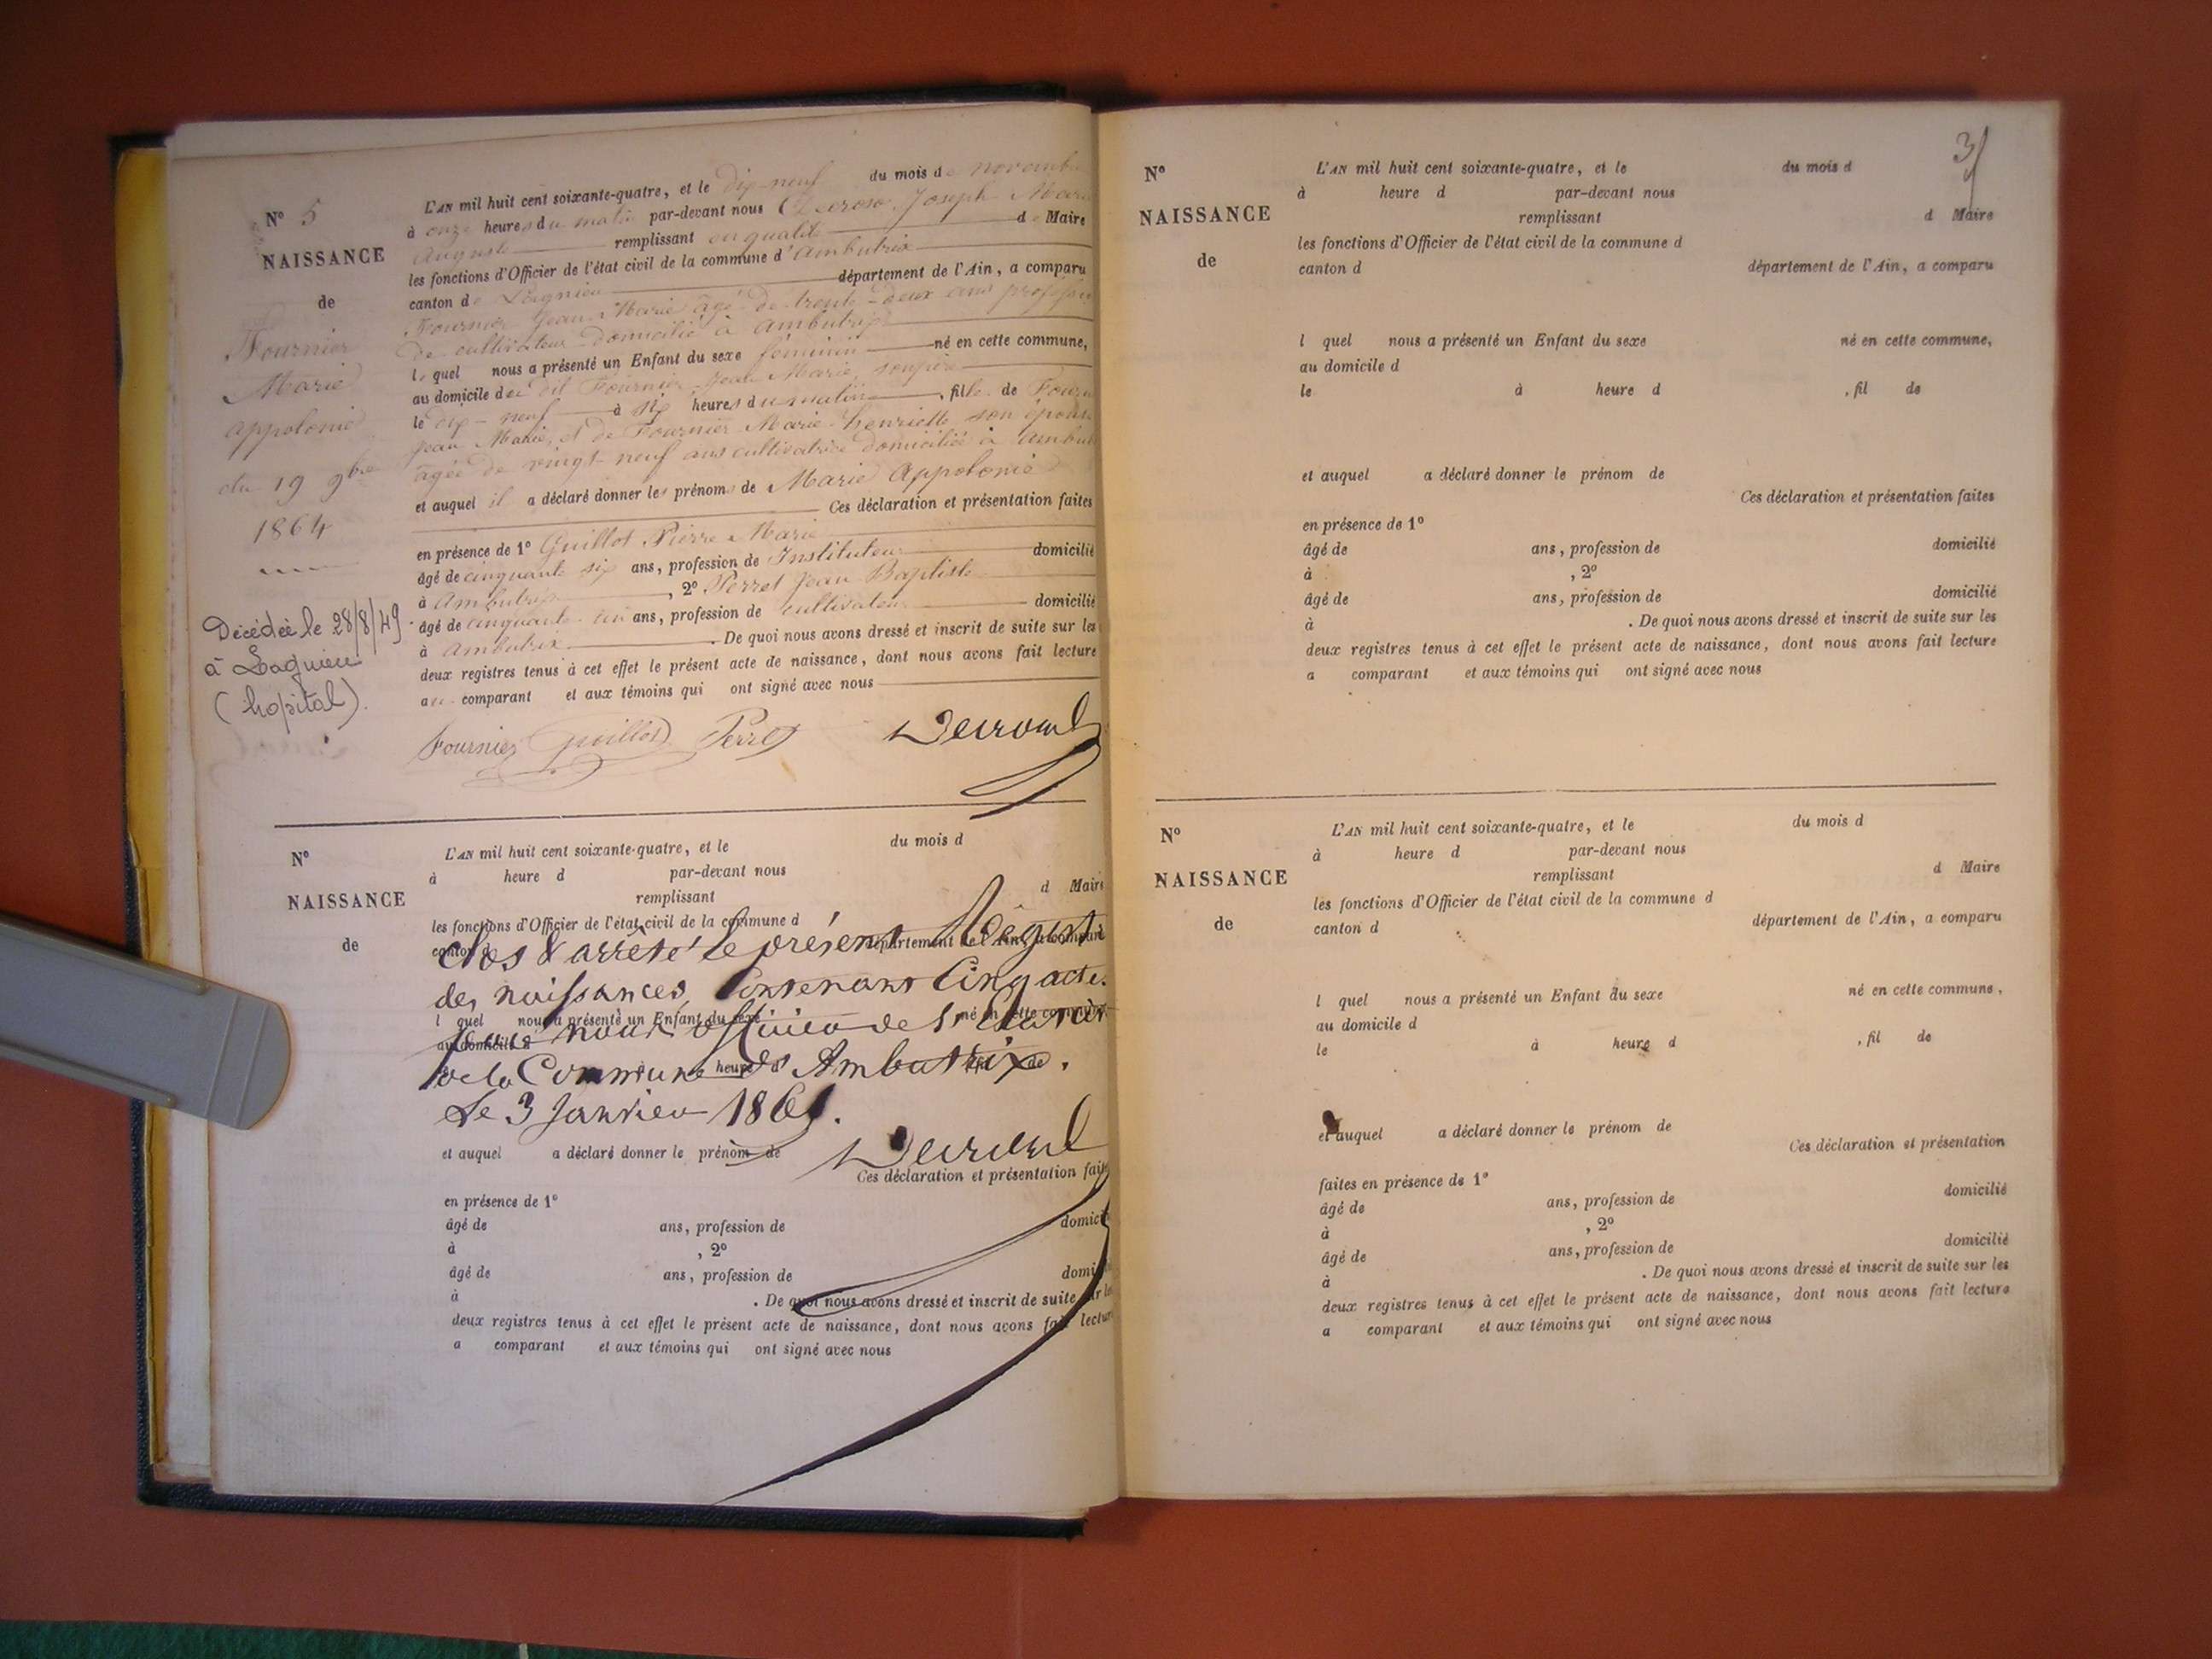 N° 5
NAISSANCE
de
Fournier
Marie
Appolonie
du 19 9bre
1864
Décédée le 28/8/49
à Lagnieu
(hôpital).
L'AN mil huit cent soixante-quatre, et le dix-neuf du mois de novembre
à onze heures du matin par-devant nous Joseph Marie
Auguste remplissant en qualité de Maire
les fonctions d'Officier de l'état civil de la commune d'Ambutrix
canton de Lagnieu département de l'Ain, a comparu
Fournier Jean Marie âgé de trente-deux ans profession
de cultivateur domicilié à Ambutrix
lequel nous a présenté un Enfant du sexe féminin né en cette commune,
au domicile du dit Fournier Jean Marie, son père
le dix-neuf à six heures du matin, fille de Fournier
Jean Marie, et de Fournier Marie henriette son épouse
âgée de vingt-neuf ans cultivatrice domiciliée à Ambutrix
et auquel il a déclaré donner les prénoms de Marie Appolonie
Ces déclaration et présentation faites
en présence de 1° Guillot Pierre Marie
âgé de cinquante six ans, profession de Instituteur domicilié
à Ambutrix, 2° Perret Jean Baptiste
âgé de cinquante ans, profession de cultivateur domicilié
à Ambutrix. De quoi nous avons dressé et inscrit de suite sur les
deux registres tenus à cet effet le présent acte de naissance, dont nous avons fait lecture
au comparant et aux témoins qui ont signé avec nous
Fournier Guillot Perret
N°
NAISSANCE
de
L'AN mil huit cent soixante-quatre, et le du mois d
à heure d par-devant nous
remplissant d Maire
les fonctions d'Officier de l'état civil de la commune d
canton d département de l'Ain, a comparu
Clos & arrêté le présent Régistre
des naissances, Contenant Cinq actes
l quel nous a présenté un Enfant du sexe né en cette commune,
par nous officier de l'
au domicile d
de la Commune d'Ambutrix.
heure d
Le 3 Janvier 1865.
et auquel a déclaré donner le prénom de
Ces déclaration et présentation faites
en présence de 1°
âgé de ans, profession de domicilié
à , 2°
âgé de ans, profession de domicilié
à . De quoi nous avons dressé et inscrit de suite sur les
deux registres tenus à cet effet le présent acte de naissance, dont nous avons fait lecture
a comparant et aux témoins qui ont signé avec nous
3
N°
NAISSANCE
de
L'AN mil huit cent soixante-quatre, et le du mois d
à heure d par-devant nous
remplissant d Maire
les fonctions d'Officier de l'état civil de la commune d
canton d département de l'Ain, a comparu
l quel nous a présenté un Enfant du sexe né en cette commune,
au domicile d
le à heure d , fil de
et auquel a déclaré donner le prénom de
Ces déclaration et présentation faites
en présence de 1°
âgé de ans, profession de domicilié
à , 2°
âgé de ans, profession de domicilié
à . De quoi nous avons dressé et inscrit de suite sur les
deux registres tenus à cet effet le présent acte de naissance, dont nous avons fait lecture
a comparant et aux témoins qui ont signé avec nous
N°
NAISSANCE
de
L'AN mil huit cent soixante-quatre, et le du mois d
à heure d par-devant nous
remplissant d Maire
les fonctions d'Officier de l'état civil de la commune d
canton d département de l'Ain, a comparu
l quel nous a présenté un Enfant du sexe né en cette commune,
au domicile d
le à heure d , fil de
et auquel a déclaré donner le prénom de
Ces déclaration et présentation
faites en présence de 1°
âgé de ans, profession de domicilié
à , 2°
âgé de ans, profession de domicilié
à . De quoi nous avons dressé et inscrit de suite sur les
deux registres tenus à cet effet le présent acte de naissance, dont nous avons fait lecture
a comparant et aux témoins qui ont signé avec nous